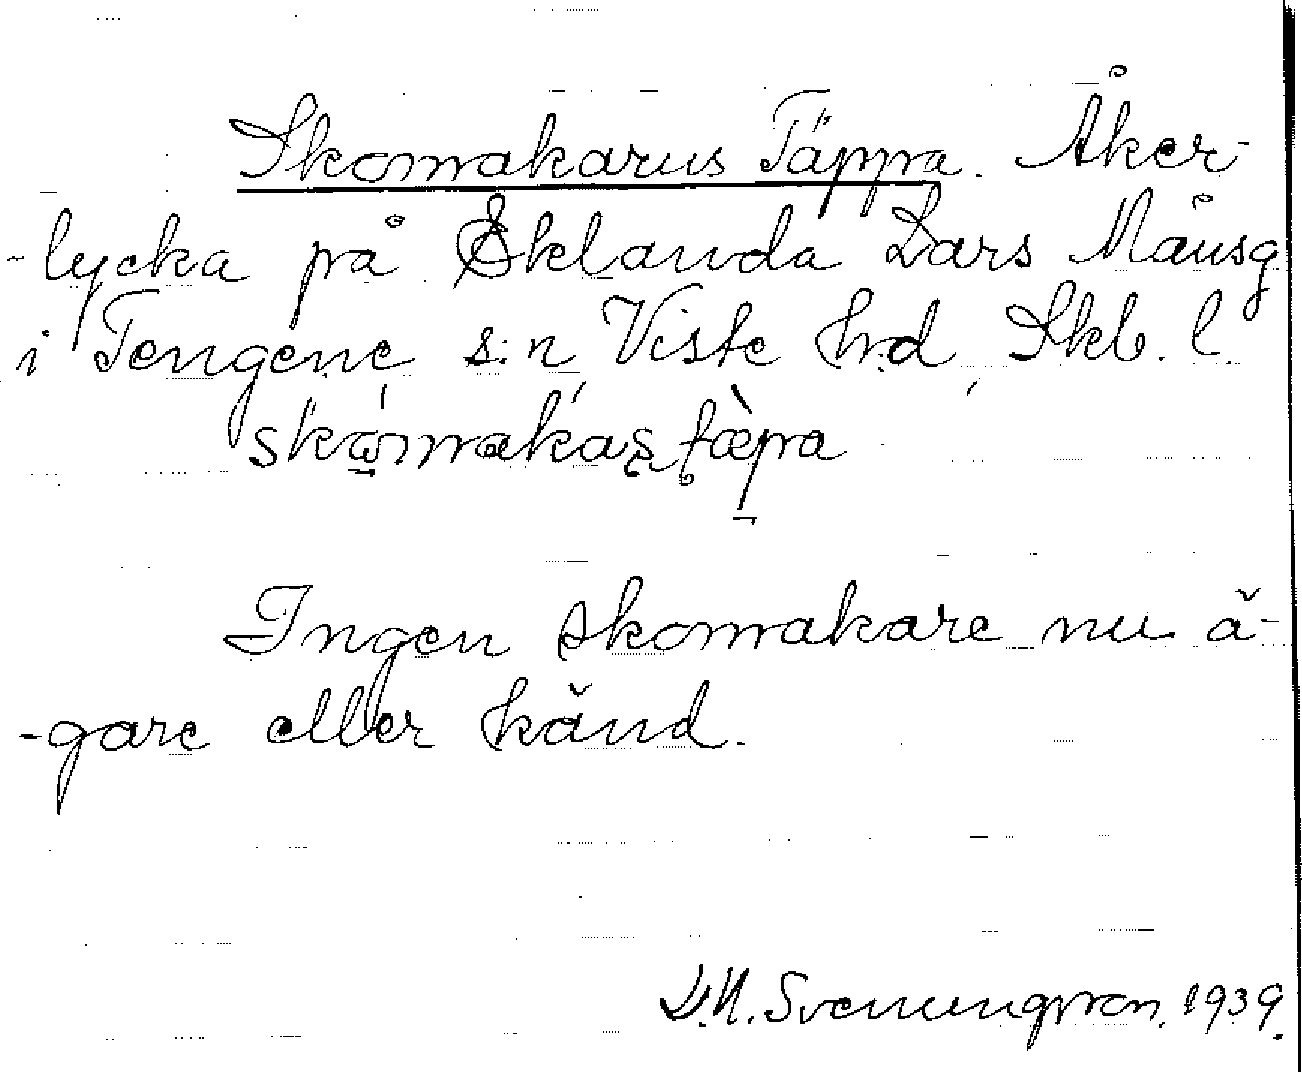 Skomakarns Täppa. Åker-
-lycka på Eklanda Lars Månsg
i Tengene s:n, Viste hrd, Skb. l.
skomakas tæpa
Ingen skomakare nu ä-
-gare eller känd.
1939.